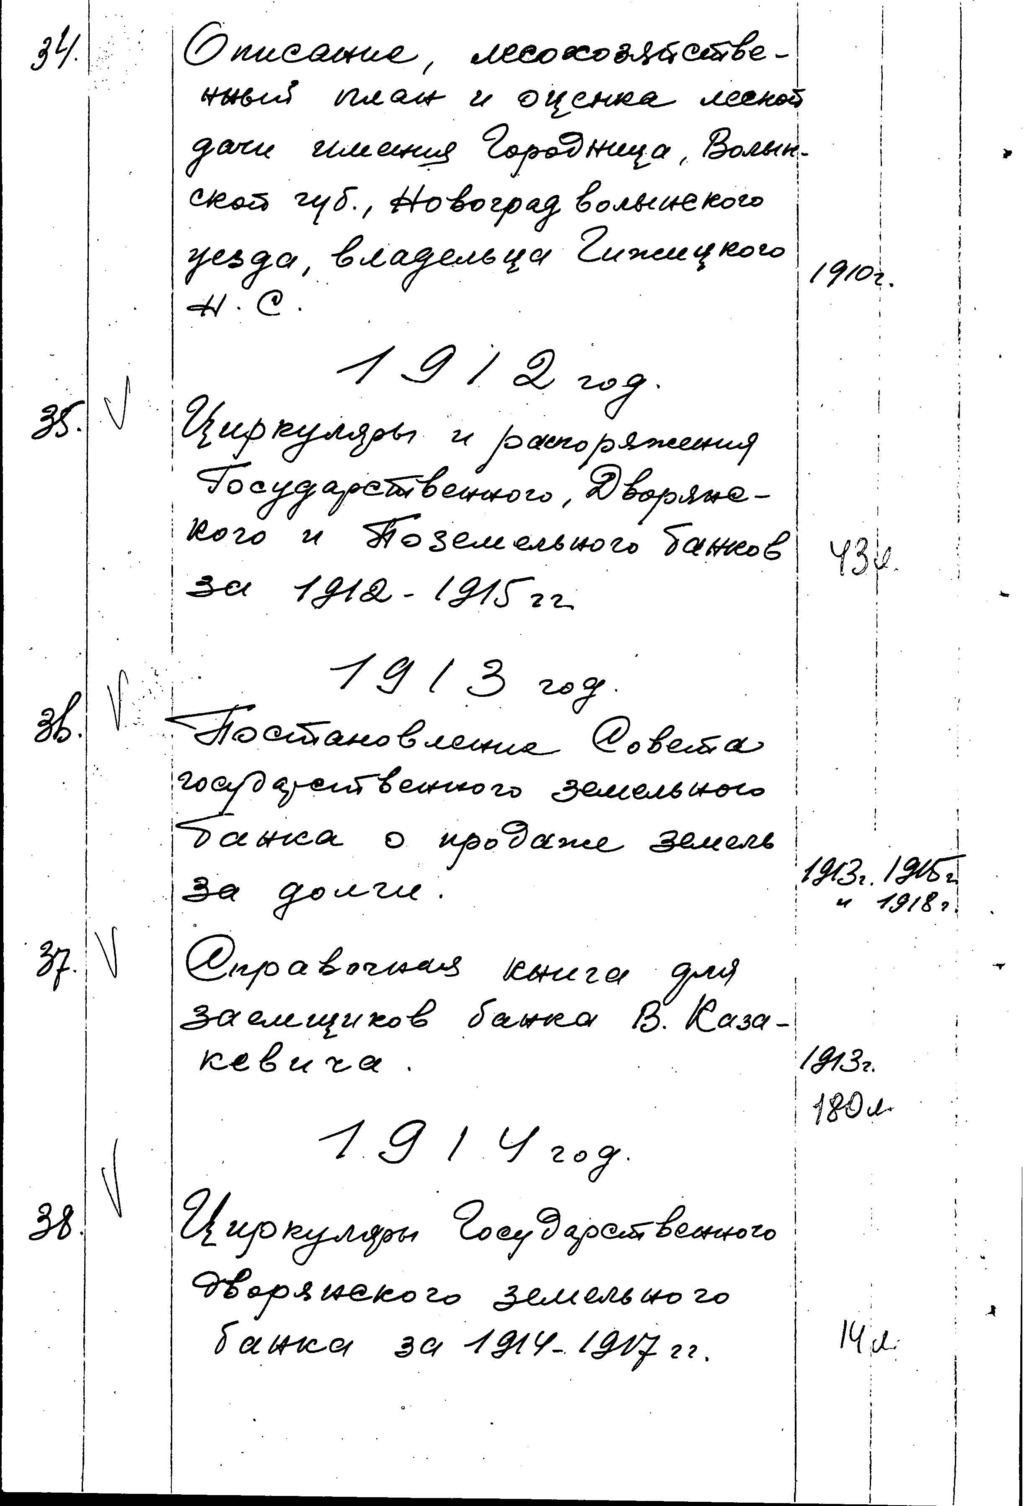 34. Описание, лесохозяйстве-
нный план и оценка лесной
дачи имения Городница, Волын-
ской губ., Новоград волынского
уезда, владельца Гижицкого 1910г.
Н. С.
1912 год.
35. V Циркуляры и распоряжения
Государственного, Дворянс-
кого и Поземельного банков 43 л.
за 1912-1915 гг
1913 год.
36. V Постановление Совета
государственного земельного
банка о продаже земель
за долги. 1913г. 1915г.
и 1918г.
37. V Справочная книга для
заемщиков банка В. Каза-
кевича. 1913г.
180 л.
1914 год.
38. V Циркуляры Государственного
дворянского земельного
банка за 1914-1917 гг. 14 л.